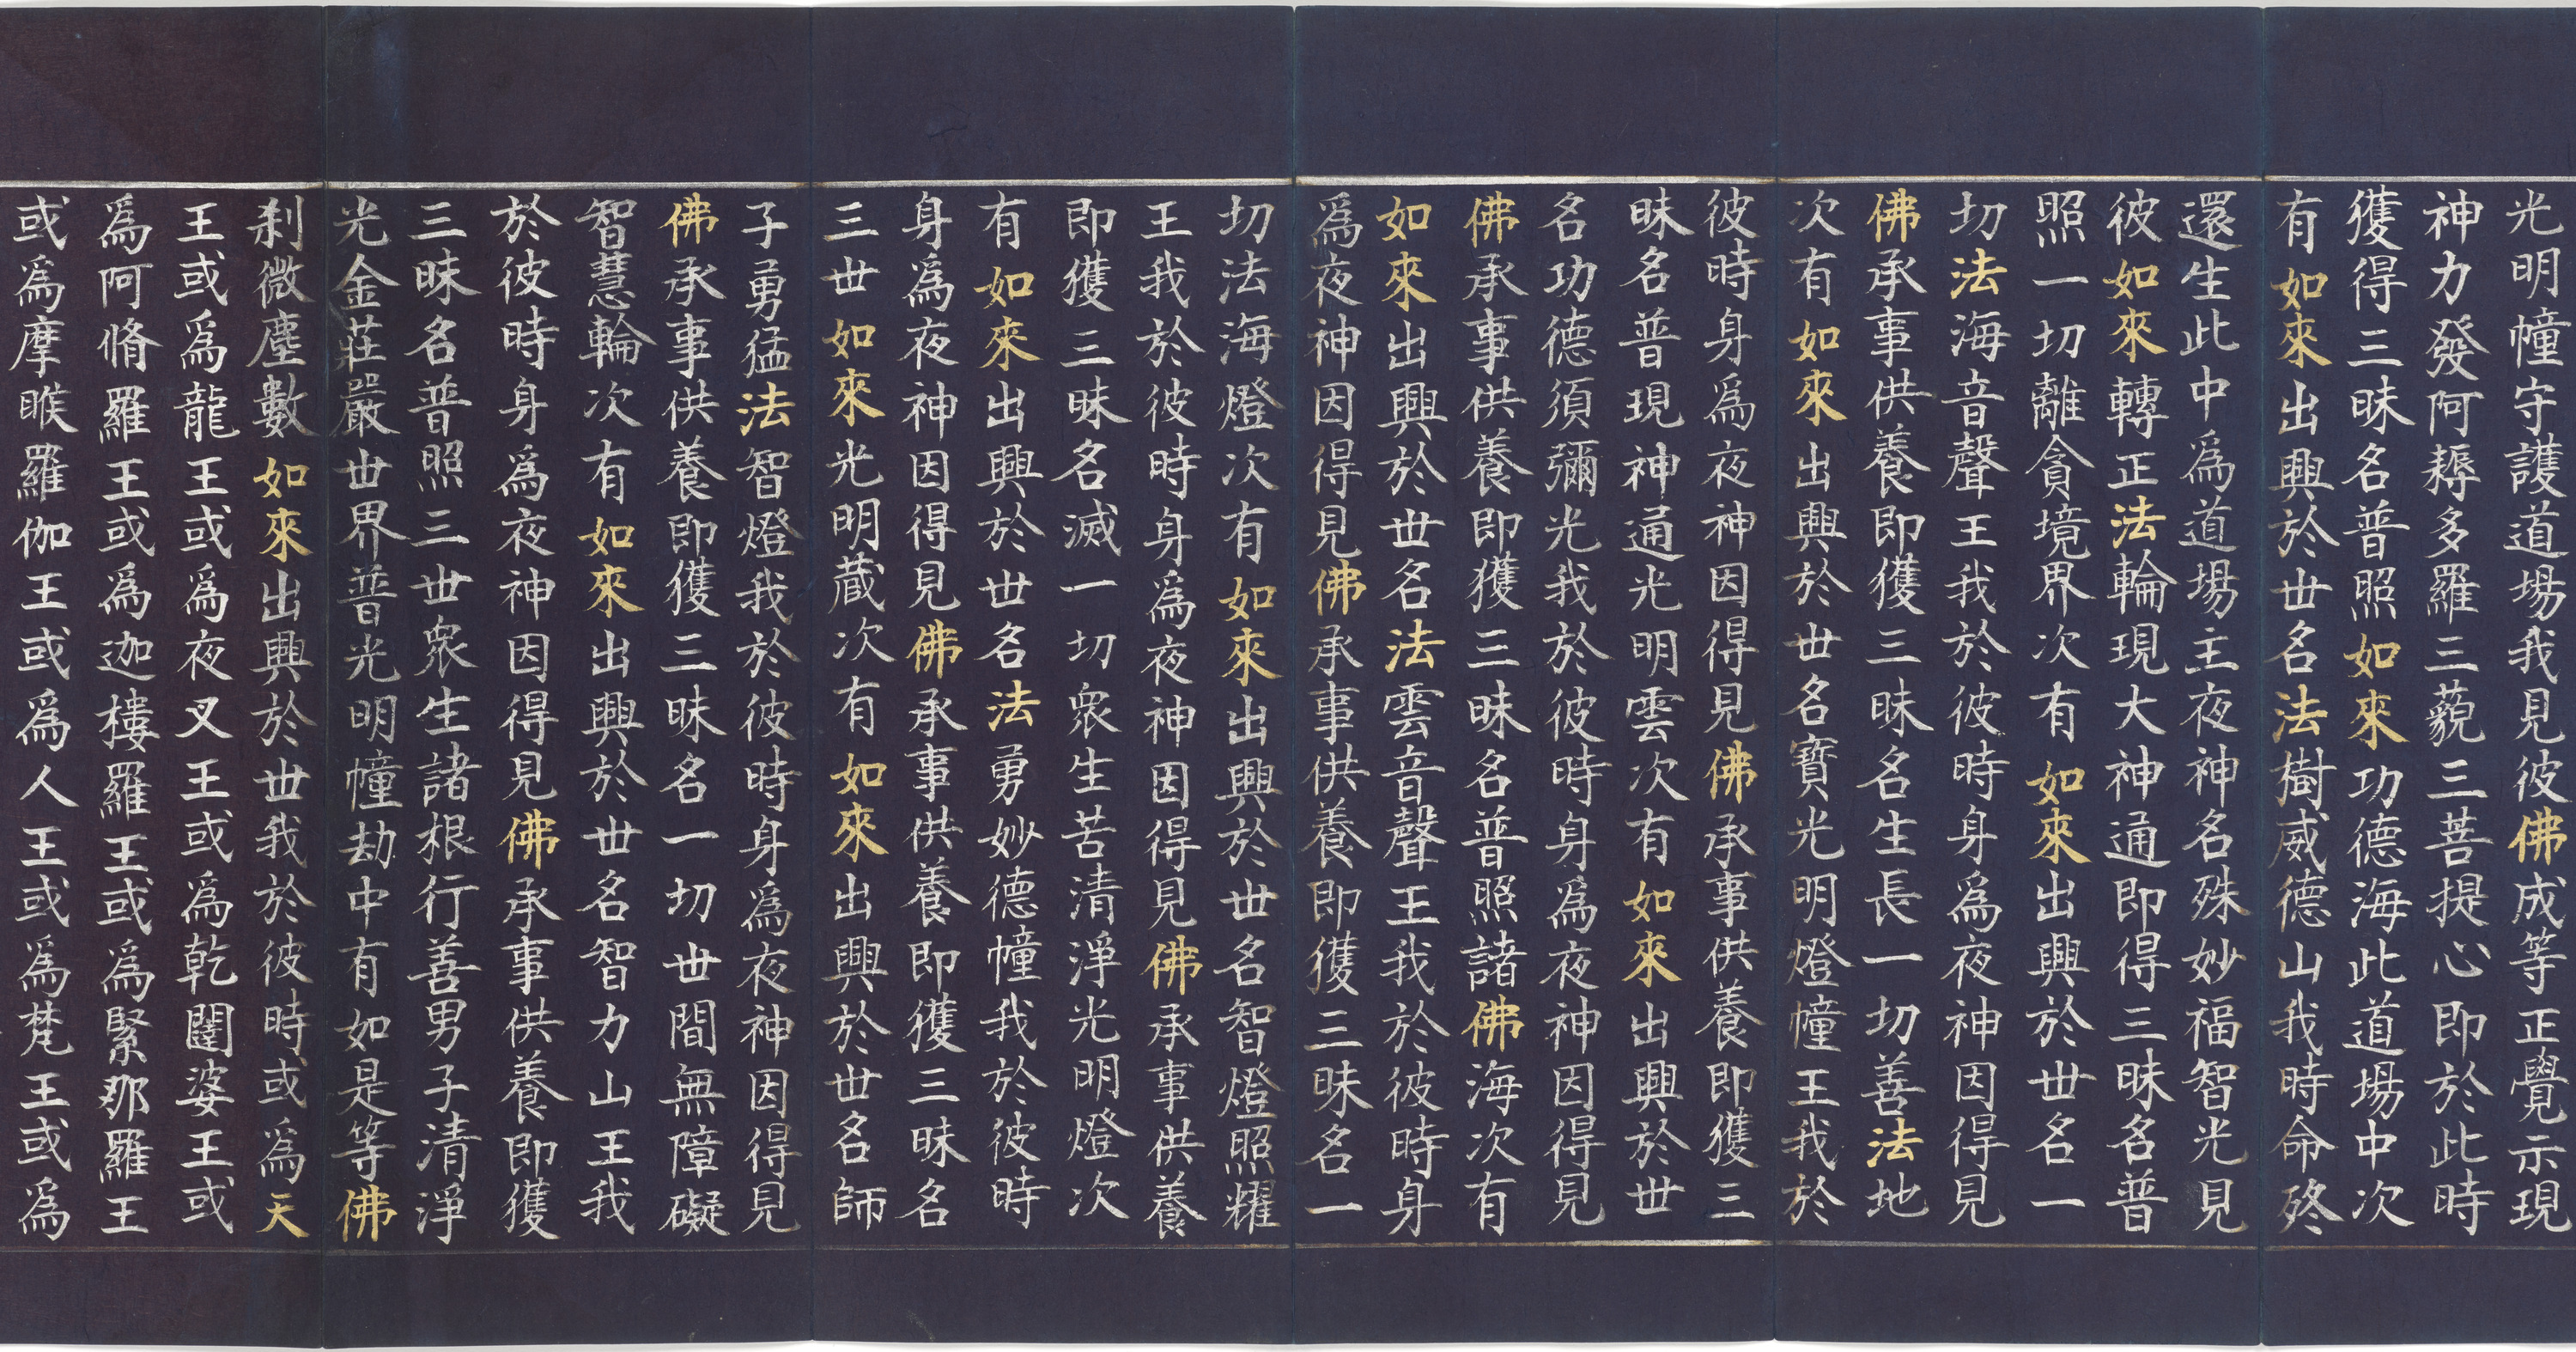 光明幢守護道場我見彼佛成等正覺示現
神力發阿耨多羅三藐三菩提心即於此時
獲得三昧名普照如來功德海此道場中次
有如來出興於世名法樹威德山我時命終
還生此中為道場主夜神名殊妙福智光見
彼如來轉正法輪現大神通即得三昧名普
照一切離貪境界次有如來出興於世名一
切法海音聲王我於彼時身為夜神因得見
佛承事供養即獲三昧名生長一切善法地
次有如來出興於世名寶光明燈幢王我於
彼時身為夜神因得見佛承事供養即獲三
昧名普現神通光明雲次有如來出興於世
名功德須彌光我於彼時身為夜神因得見
佛承事供養即獲三昧名普照諸佛海次有
如來出興於世名法雲音聲王我於彼時身
為夜神因得見佛承事供養即獲三昧名一
切法海燈次有如來出興於世名智燈照耀
王我於彼時身為夜神因得見佛承事供養
即獲三昧名滅一切衆生苦清淨光明燈次
有如來出興於世名法勇妙德幢我於彼時
身為夜神因得見佛承事供養即獲三昧名
三世如來光明藏次有如來出興於世名師
子勇猛法智燈我於彼時身為夜神因得見
佛承事供養即獲三昧名一切世間無障礙
智慧輪次有如來出興於世名智力山王我
於彼時身為夜神因得見佛承事供養即獲
三昧名普照三世衆生諸根行善男子清淨
光金莊嚴世界普光明幢劫中有如是等佛
刹微塵數如來出興於世我於彼時或為天
王或為龍王或為夜叉王或為乾闥婆王或
為阿脩羅王或為迦樓羅王或為緊那羅王
或為摩睺羅伽王或為人王或為梵王或為